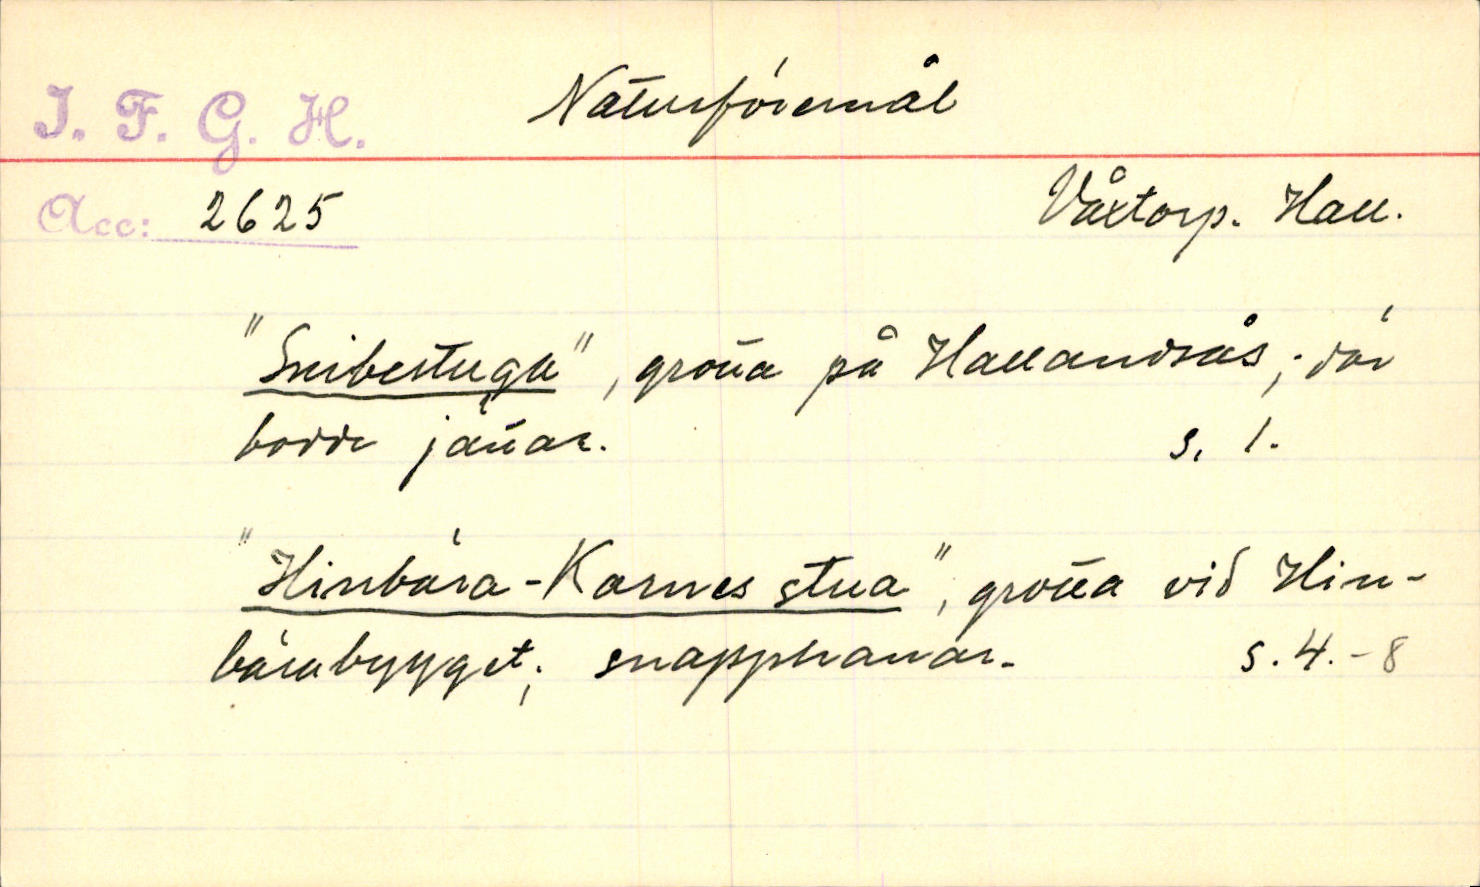 I. F. G. H. Naturföremål
Acc: 2625 Våxtorp. Hall.
"Snibestuga", grotta på Hallandsås; där
bodde jättar. s. 1.
"Hinbära-Karnes stua", grotta vid Hin-
bärabygget; snapphanar. s. 4.-8